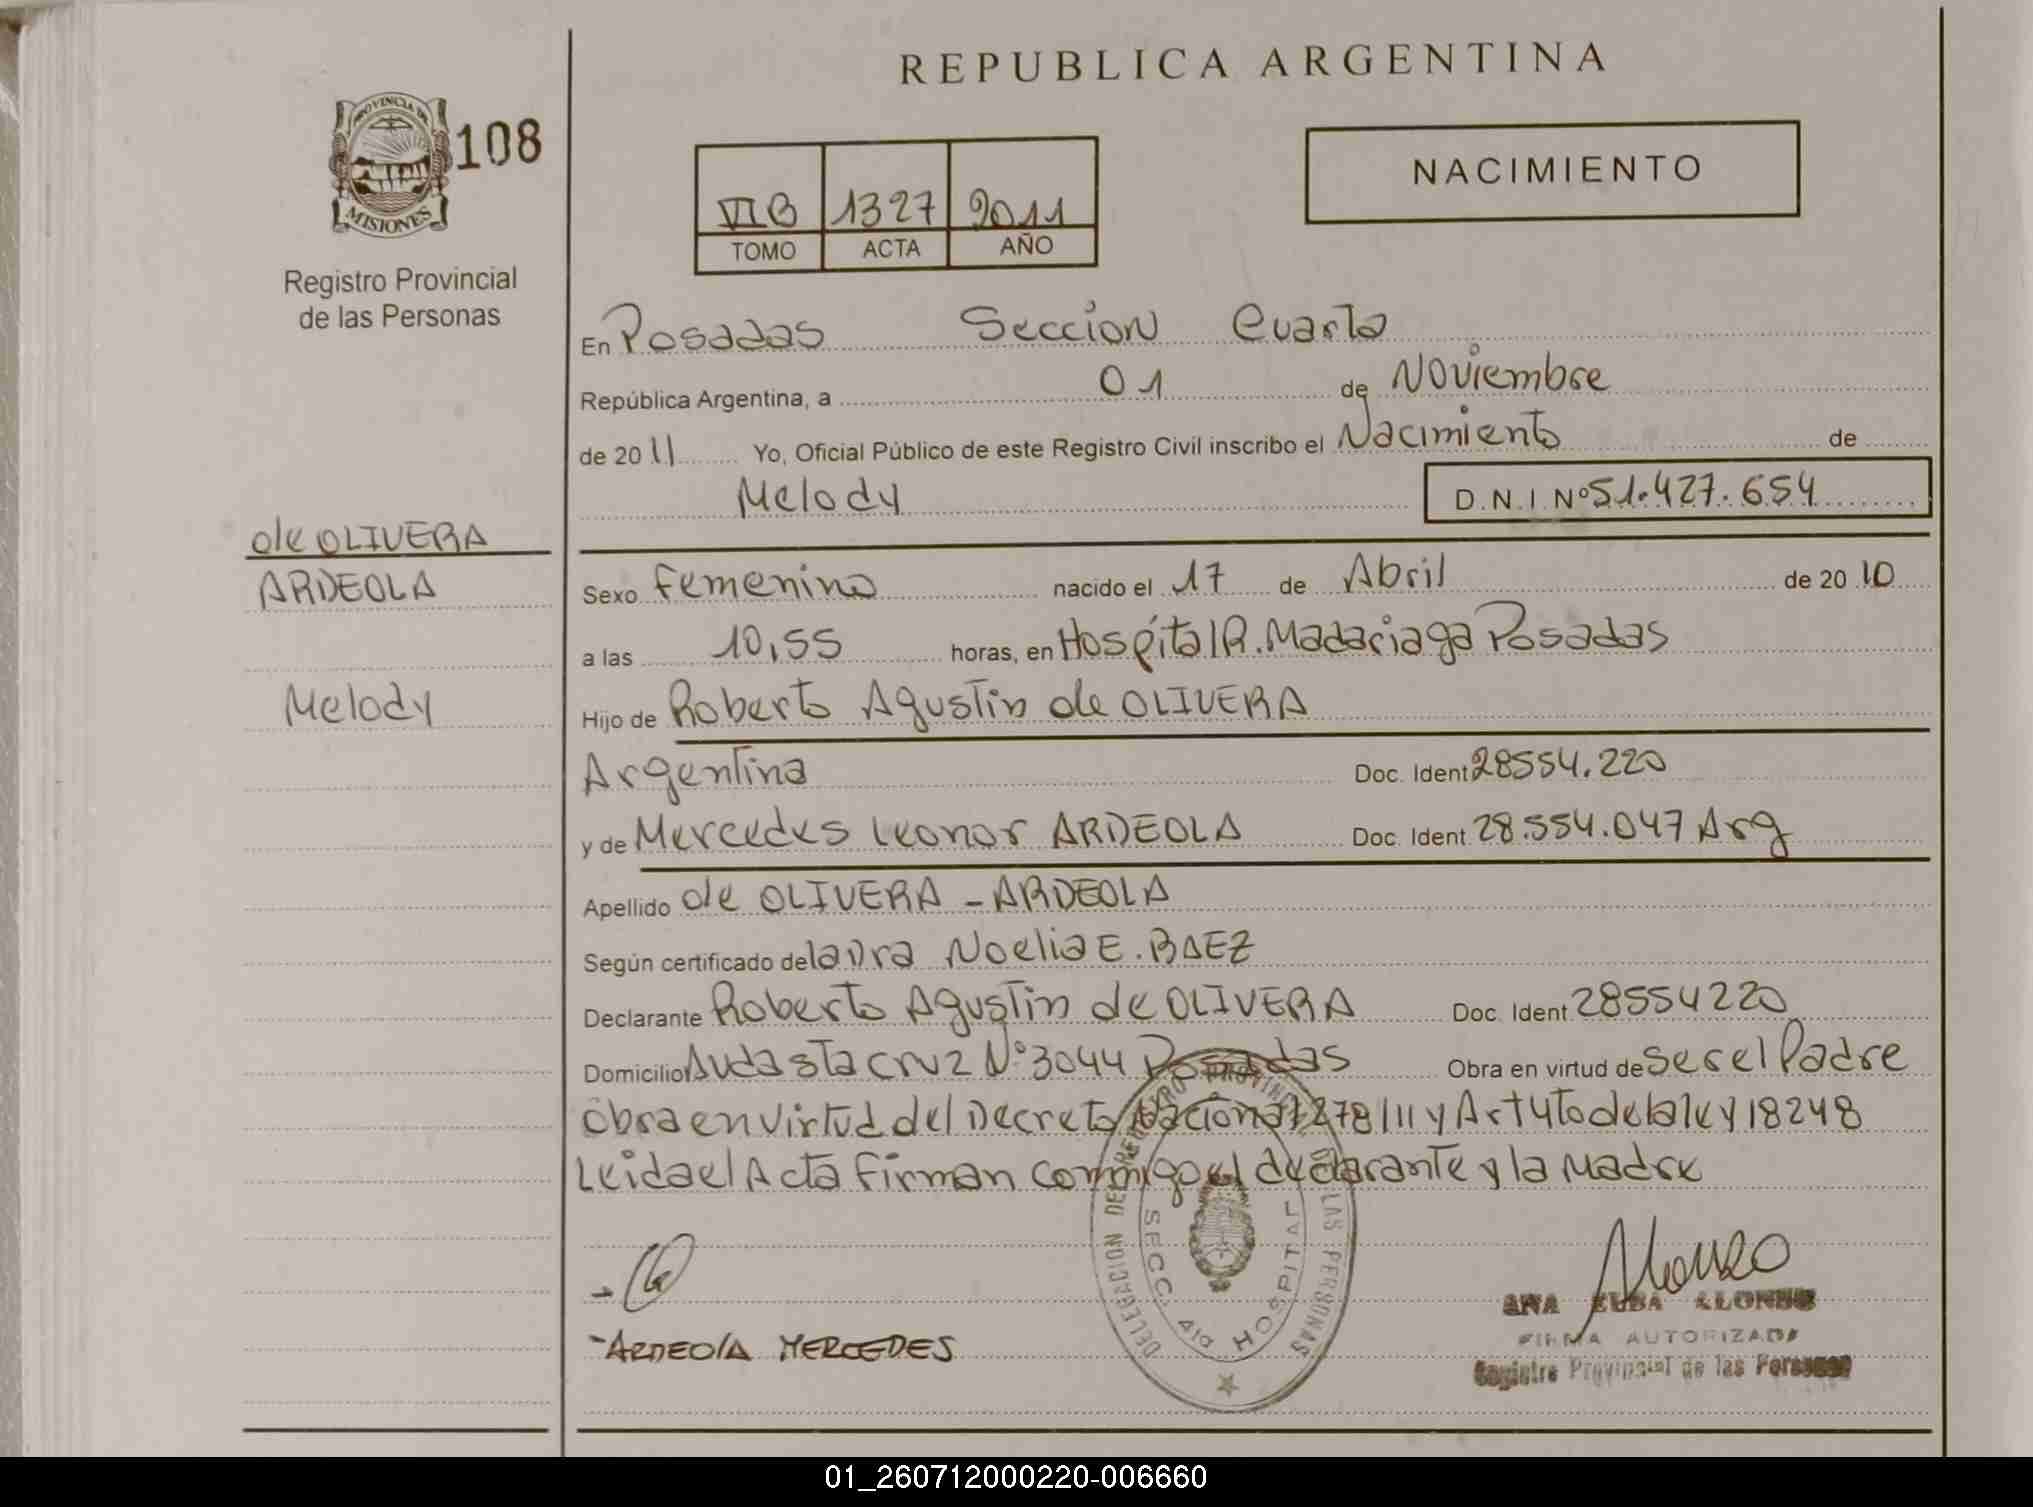 REPUBLICA ARGENTINA
PROVINCIA DE
MISIONES
108
NACIMIENTO
VII B 1327 2011
TOMO ACTA AÑO
Registro Provincial
de las Personas
En Posadas Sección Cuarta
República Argentina, a 01 de Noviembre
de 2011 Yo, Oficial Público de este Registro Civil inscribo el Nacimiento de
Melody D.N.I. Nº 51.427.654
de OLIVERA
ARDEOLA
Melody
Sexo Femenino nacido el 17 de Abril de 2010
a las 10,55 horas, en Hospital R. Madariaga Posadas
Hijo de Roberto Agustin de OLIVERA
Argentina Doc. Ident 28554.220
y de Mercedes Leonor ARDEOLA Doc. Ident. 28.554.047 Arg
Apellido de OLIVERA - ARDEOLA
Según certificado de la Dra Noelia E. BAEZ
Declarante Roberto Agustin de OLIVERA Doc. Ident 28554220
Domicilio Avda Sta Cruz Nº 3044 Posadas Obra en virtud de ser el Padre
Obra en virtud del Decreto Nacional 278/11 y Art 4to de la ley 18248
Leida el Acta firman conmigo el declarante y la Madre
DELEGACION DEL REGISTRO PROVINCIAL DE LAS PERSONAS
SECC. 4ta HOSPITAL
- ARDEOLA MERCEDES
Alonso
ANA ELBA ALONSO
FIRMA AUTORIZADA
Registro Provincial de las Personas
01_260712000220-006660